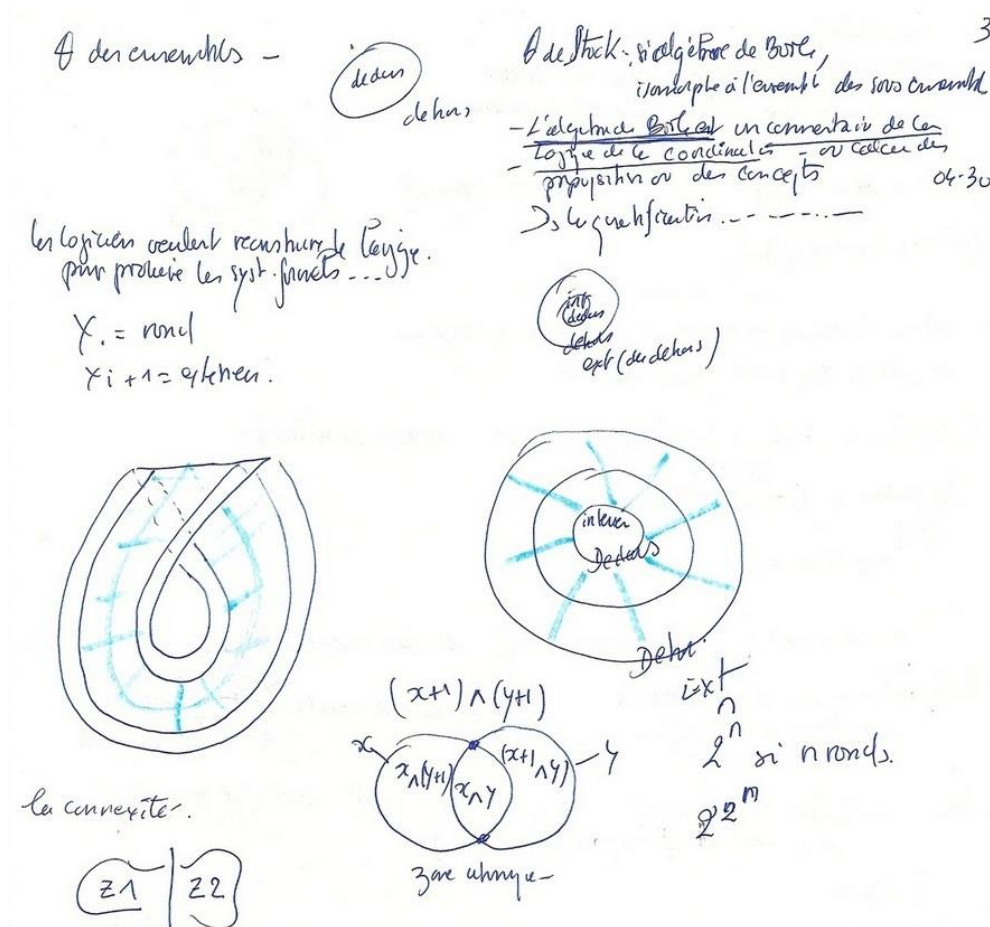 3
θ des ensembles -
dedans
dehors
θ de Stock : si algèbre de Boole,
isomorphe à l'ensembl des sous ensembl
- L'algèbre de Boole est un commentaire de la
- Logique de la coordination - ou calcul des
proposition ou des concepts
04-30
Ds la quantification
les logiciens veulent reconstruire le langage.
pour produire les syst. formels ....
X. = rond
Xi + 1 = extérieur.
dedans
dehors
ext (du dehors)
Dehors
Dehor.
Ext
n
(x+1) ∧ (y+1)
x
x∧(y+1)
x∧y
(x+1∧y)
y
2^n si n ronds.
2^2^n
la connexité.
Z1
Z2
zone